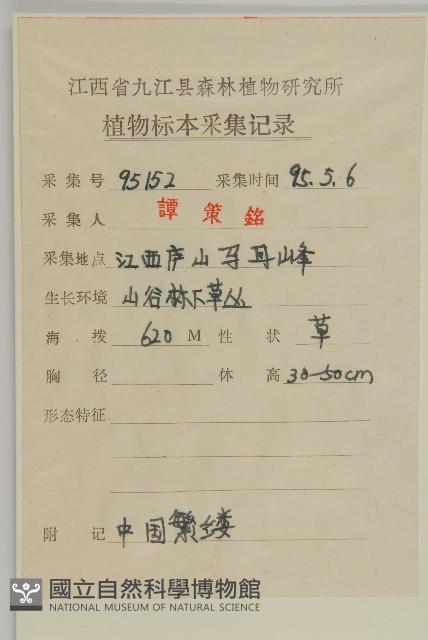 江西省九江县森林植物研究所
植物标本采集记录
采集号 95152 采集时间 95.5.6
采集人 譚策銘
采集地点 江西庐山马耳峰
生长环境 山谷林下草丛
海拨 620 M 性状 草
胸径 体高 30-50cm
形态特征
附记 中国繁缕
國立自然科學博物館
NATIONAL MUSEUM OF NATURAL SCIENCE